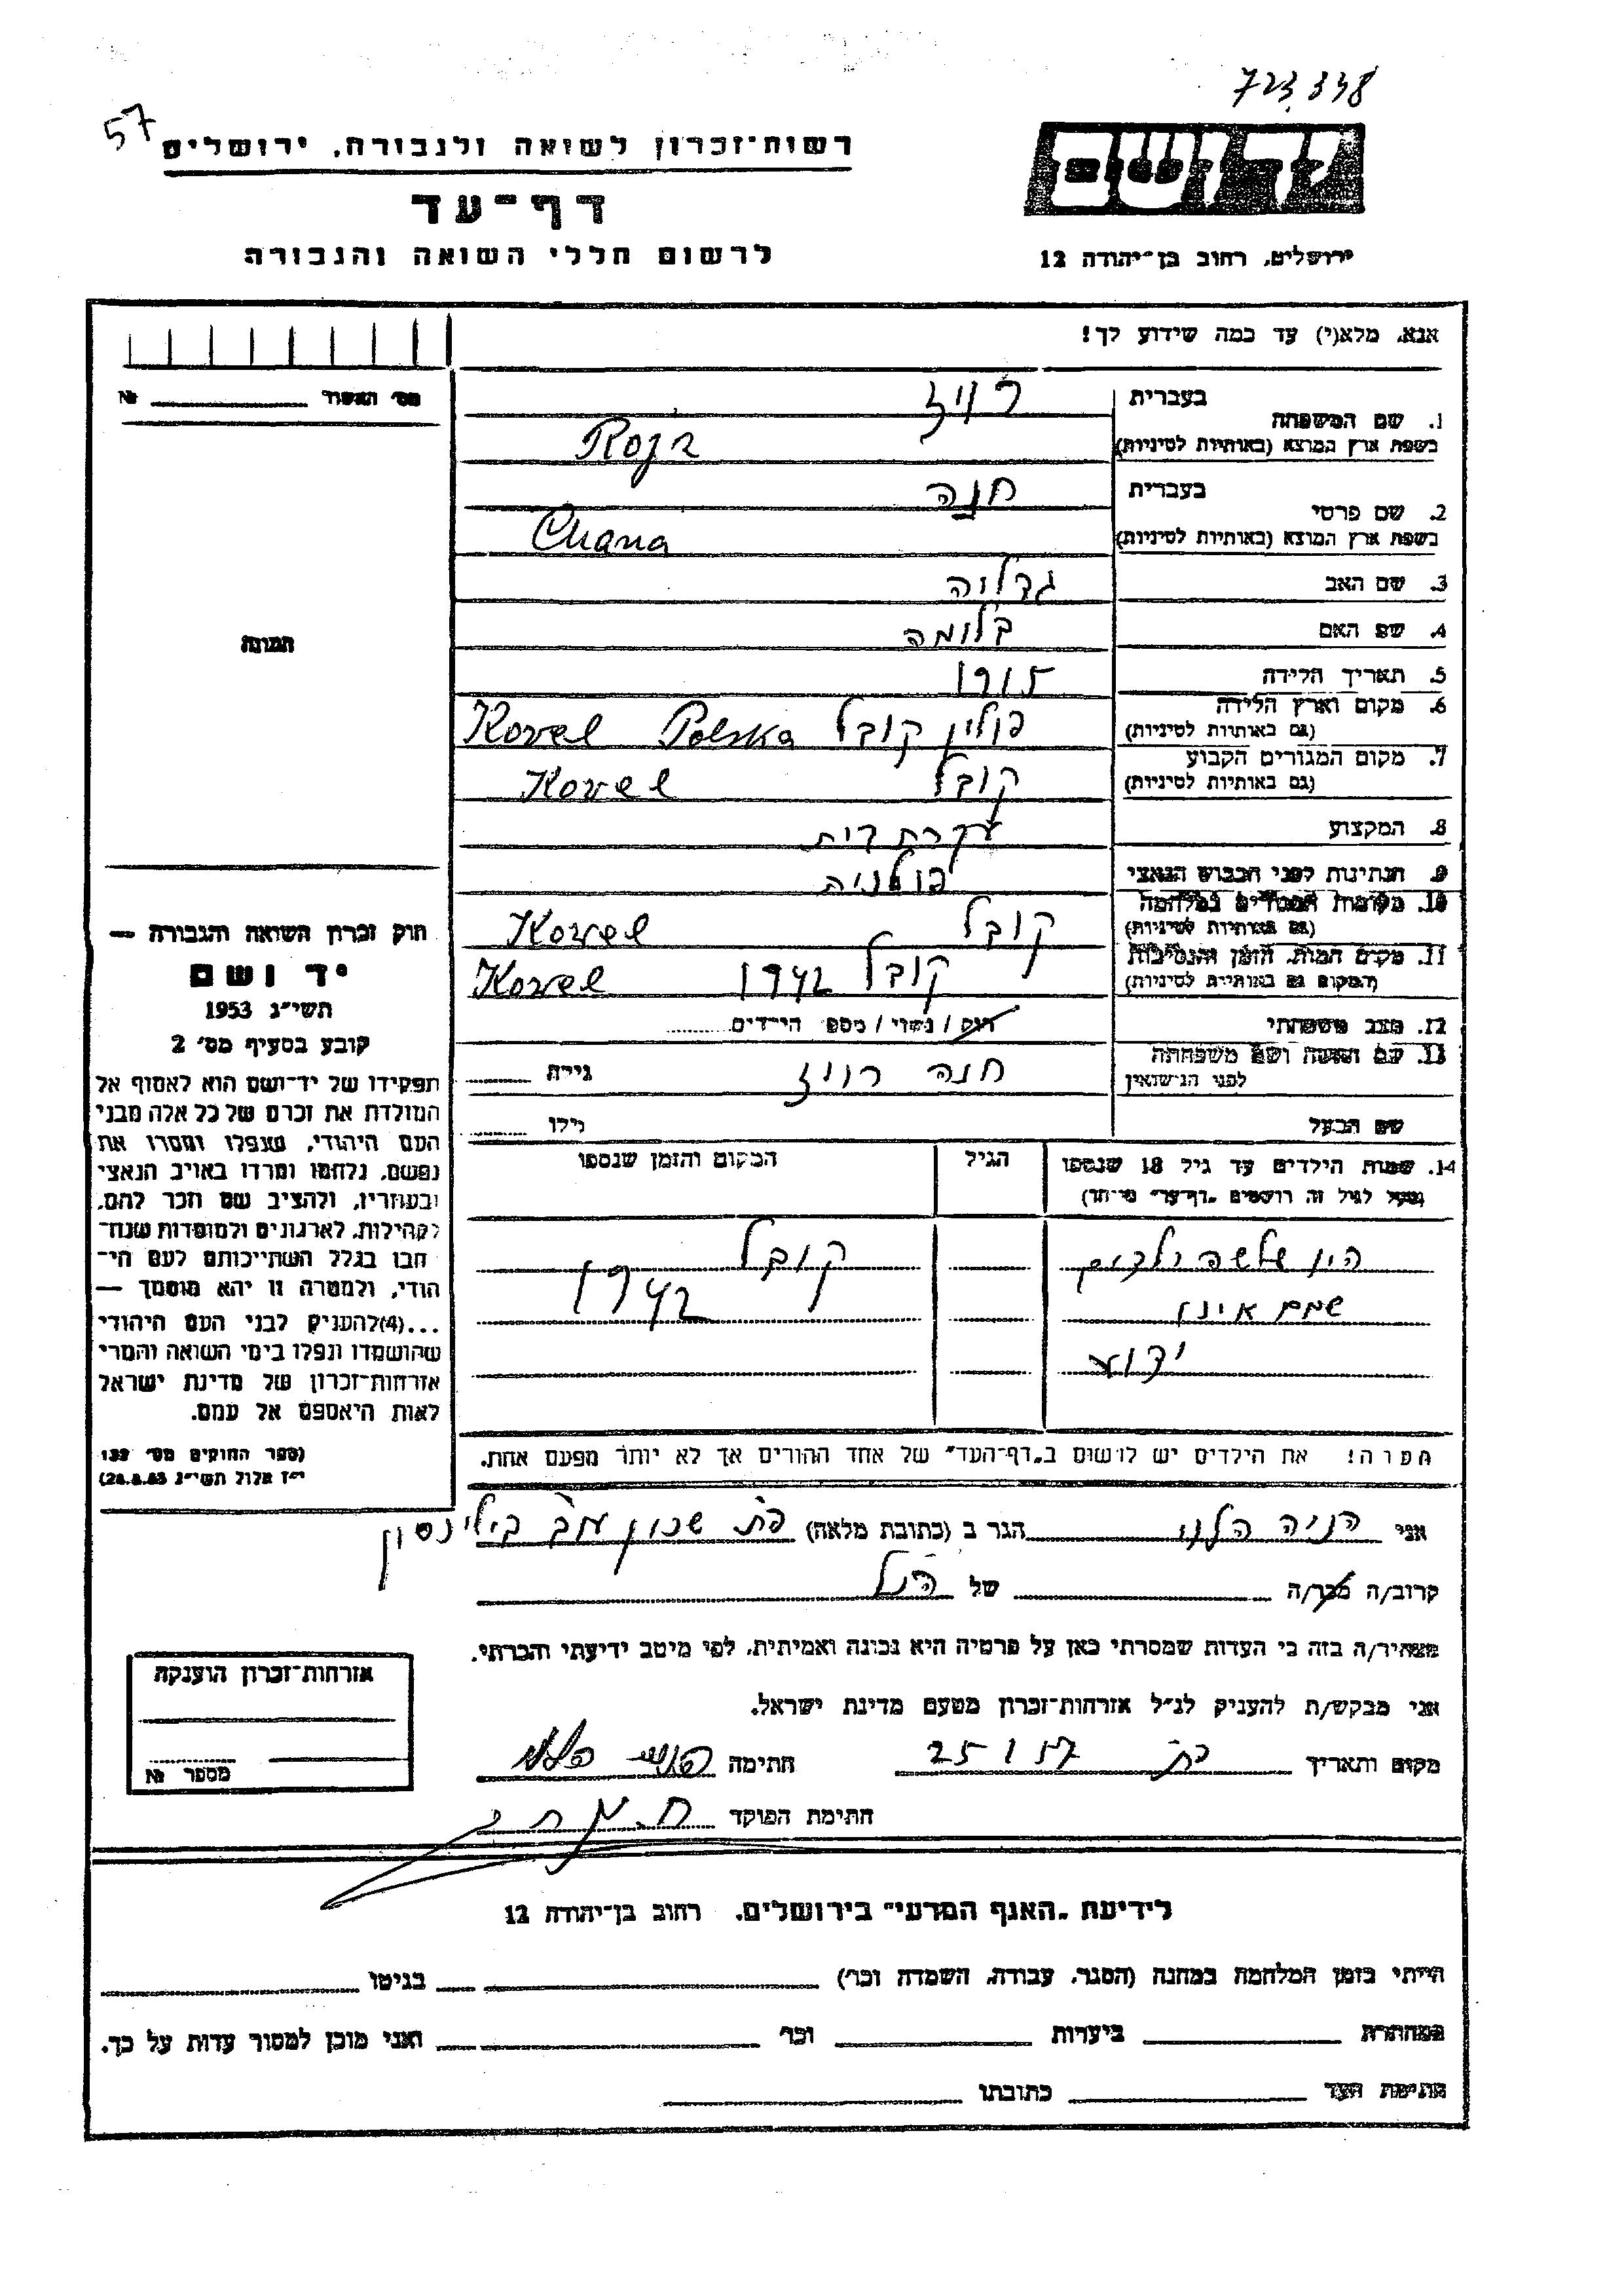 723,338
57
רשות־זכרון לשואה ולגבורה, ירושלים
יד ושם
דף־עד
לרשום חללי השואה והגבורה
ירושלים, רחוב בן־יהודה 12
אנא, מלא(י) עד כמה שידוע לך!
מס' האשור № 
1. שם המשפחה בעברית רויז
בשפת ארץ המוצא (באותיות לטיניות) Rojz
2. שם פרטי בעברית חנה
בשפת ארץ המוצא (באותיות לטיניות) Chana
3. שם האב גדליה
4. שם האם בלומה
התמונה
5. תאריך הלידה 1915
6. מקום וארץ הלידה (גם באותיות לטיניות) פולין קובל Polska Kovel
7. מקום המגורים הקבוע (גם באותיות לטיניות) קובל Kovel
8. המקצוע עקרת בית
9. הנתינות לפני הכבוש הנאצי פולניה
10. מקומות המגורים במלחמה (גם באותיות לטיניות) קובל Kovel
11. מקום המות, הזמן והנסיבות (המקום גם באותיות לטיניות) קובל 1942 Kovel
12. מצב משפחתי רווק / נשוי / מספר הילדים
13. שם האשה ושם משפחתה לפני הנישואין חנה רויז גילה
שם הבעל גילו
14. שמות הילדים עד גיל 18 שנספו הגיל המקום והזמן שנספו
(מעל לגיל זה רושמים "דף־עד" מיוחד)
היו שלשה ילדים קובל
שמם אינו 1942
ידוע
הערה! את הילדים יש לרשום ב"דף־העד" של אחד ההורים אך לא יותר מפעם אחת.
חוק זכרון השואה והגבורה —
יד ושם
תשי"ג 1953
קובע בסעיף מס' 2
תפקידו של יד־ושם הוא לאסוף אל
המולדת את זכרם של כל אלה מבני
העם היהודי, שנפלו ומסרו את
נפשם, נלחמו ומרדו באויב הנאצי
ובעוזריו, ולהציב שם וזכר להם,
לקהילות, לארגונים ולמוסדות שנח־
רבו בגלל השתייכותם לעם הי־
הודי, ולמטרה זו יהא מוסמך —
...(4)להעניק לבני העם היהודי
שהושמדו ונפלו בימי השואה והמרי
אזרחות־זכרון של מדינת ישראל
לאות היאספם אל עמם.
(ספר החוקים מס' 132
י"ז אלול תשי"ג 28.8.53)
אני הגר ב (כתובת מלאה) שכון בילינסון
קרוב/ה מכר/ה של הנ"ל
מצהיר/ה בזה כי העדות שמסרתי כאן על פרטיה היא נכונה ואמיתית, לפי מיטב ידיעתי והכרתי.
אני מבקש/ת להעניק לנ"ל אזרחות־זכרון מטעם מדינת ישראל.
מקום ותאריך 25 1 57 חתימה
חתימת הפוקד
אזרחות־זכרון הוענקה
מספר №
לידיעת "האגף המדעי" בירושלים, רחוב בן־יהודה 12
הייתי בזמן המלחמה במחנה (הסגר, עבודה, השמדה וכו') בגיטו
במחתרת ביערות וכו' ואני מוכן למסור עדות על כך.
חתימת העד כתובתו